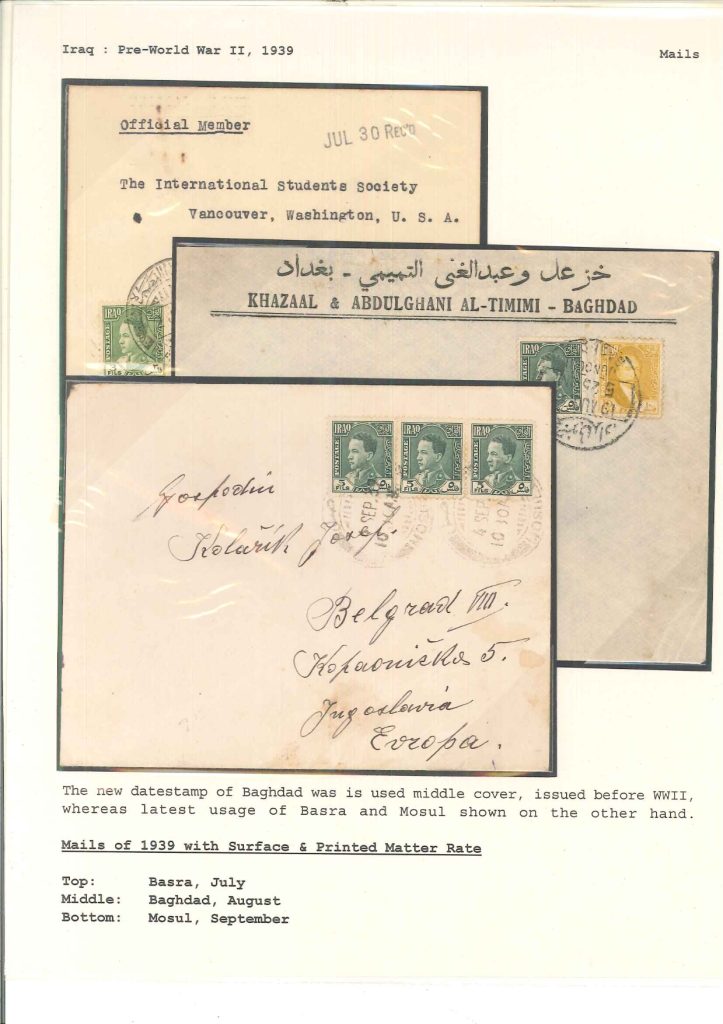 Iraq : Pre-World War II, 1939
Mails
Official Member
JUL 30 REC'D
The International Students Society
Vancouver, Washington, U. S. A.
IRAQ
FILS
خزعل وعبدالغني التميمي - بغداد
KHAZAAL & ABDULGHANI AL-TIMIMI - BAGHDAD
IRAQ
IRAQ
POSTAGE
5 FILS ٥
IRAQ
POSTAGE
5 FILS ٥
IRAQ
POSTAGE
5 FILS ٥
4 SEP
10
Gospodin
Kolařik Josef.
Belgrad VIII.
Kopaonička 5.
Jugoslavia
Evropa.
The new datestamp of Baghdad was is used middle cover, issued before WWII,
whereas latest usage of Basra and Mosul shown on the other hand.
Mails of 1939 with Surface & Printed Matter Rate
Top: Basra, July
Middle: Baghdad, August
Bottom: Mosul, September